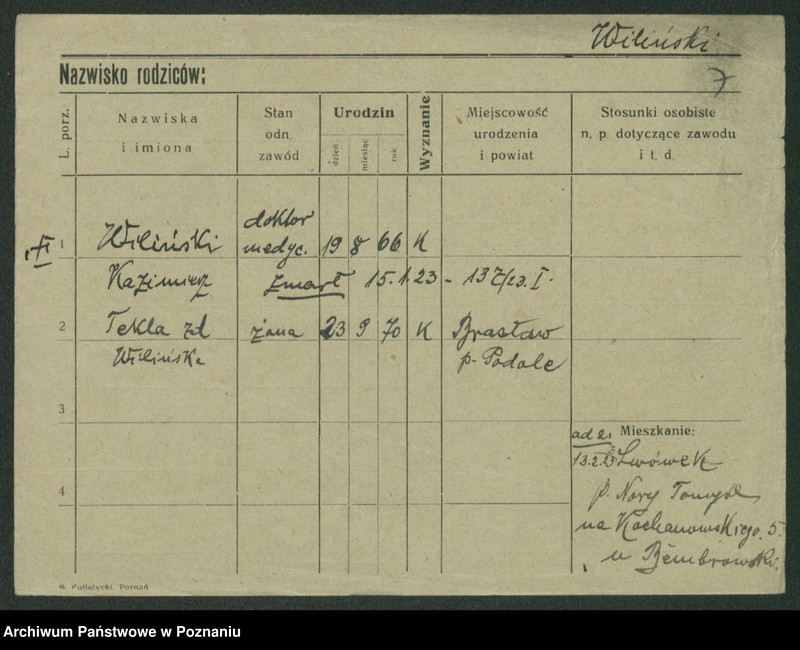 Wiliński
7
Nazwisko rodziców:
L. porz.
Nazwiska
i imiona
Stan
odn.
zawód
Urodzin
dzień
miesiąc
rok
Wyznanie
Miejscowość
urodzenia
i powiat
Stosunki osobiste
n, p. dotyczące zawodu
i t. d.
1 Wiliński doktor medyc. 19 8 66 K
Kazimierz zmarł 15.1.23 - 137/23. I.
2 Tekla zd żona 23 9 70 K Brasław
Wilińska p. Podole
3
ad 2. Mieszkanie:
13.2.23 Lwówek
4
p. Nowy Tomyśl
na Kochanowskiego 5.
u
M. Putiatycki, Poznań
Archiwum Państwowe w Poznaniu